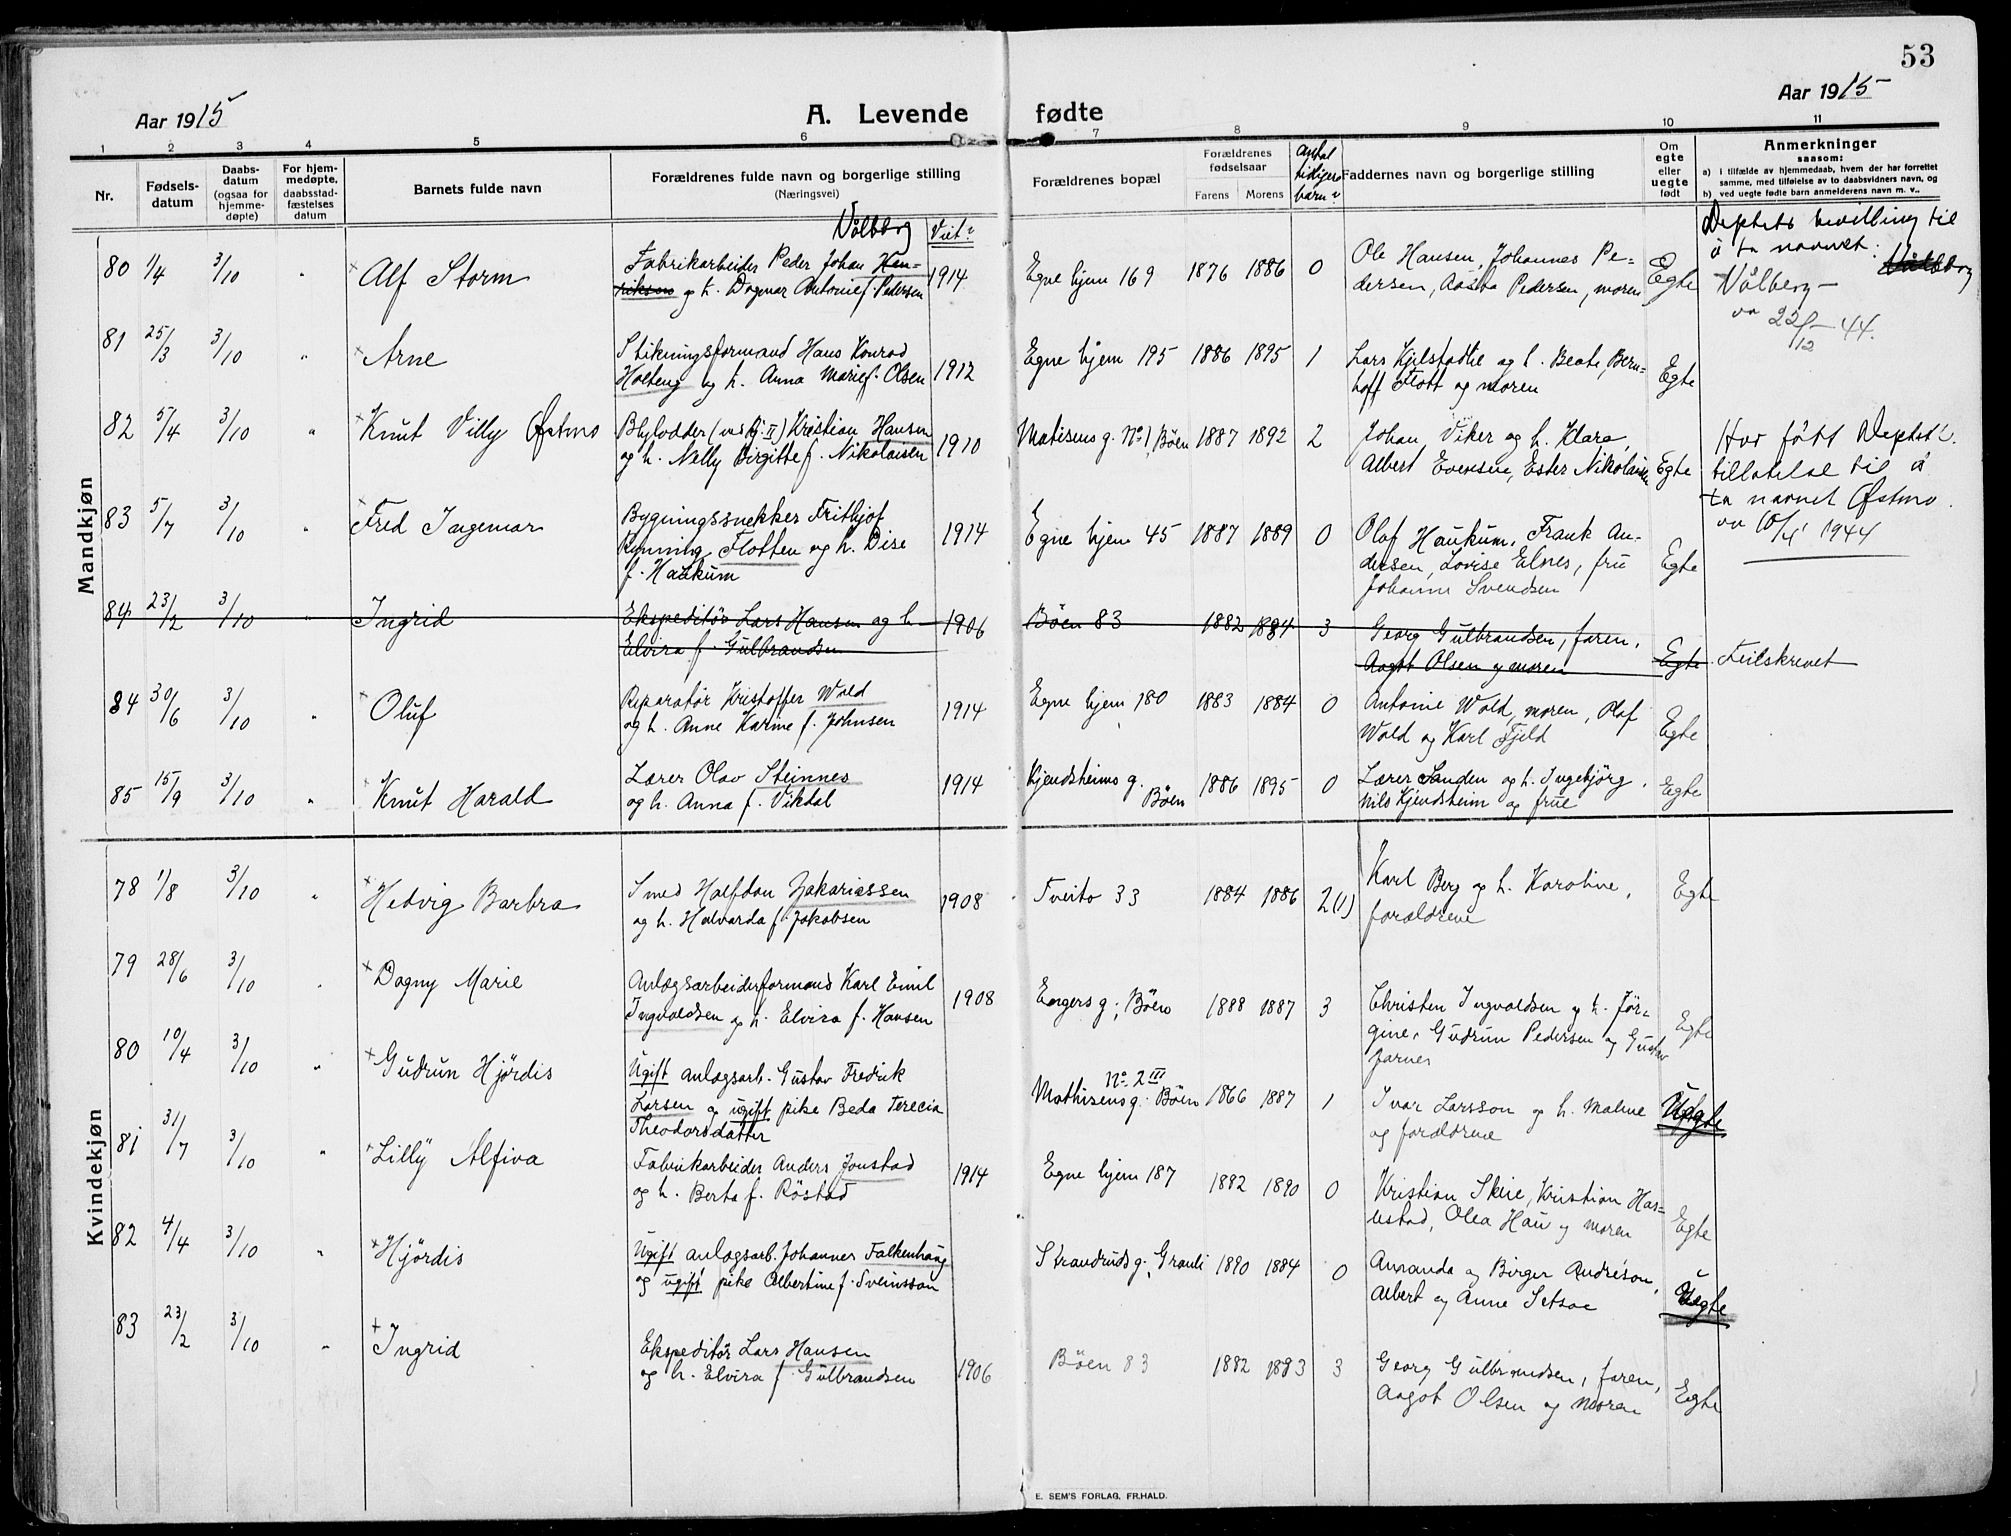 53
Aar 1915
A. Levende fødte
Aar 1915
1 2 3 4 5 6 7 8 9 10 11
Nr.
Fødsels-
datum
Daabs-
datum
(ogsaa for
hjemme-
døpte)
For hjem-
medøpte,
daabsstad-
fæstelses
datum
Barnets fulde navn
Forældrenes fulde navn og borgerlige stilling
(Næringsvei)
Viet:
Forældrenes bopæl
Forældrenes
fødselsaar
Farens Morens
Antal
tidligere
barn:
Faddernes navn og borgerlige stilling
Om
egte
eller
uegte
født
Anmerkninger
saasom:
a) i tilfælde av hjemmedaab, hvem der har forrettet
samme, med tilføielse av to daabsvidners navn, og
b) ved uegte fødte barn anmelderens navn m. v..
Mandkjøn
Nålberg
80 1/4 3/10 " Alf Storm Fabrikarbeider Peder Johan Hen-
riksen og h. Dagmar Antonie f. Pedersen 1914 Egne hjem 169 1876 1886 0 Ole Hansen, Johannes Pe-
dersen, Aasta Pedersen, moren Egte
Deptets bevilling til
å ta navnet
Nålberg
22/12 - 44.
81 25/3 3/10 " Arne Stikningsformand Hans Konrad
Holteng og h. Anna Marie f. Olsen 1912 Egne hjem 195 1886 1895 1 Lars Kjelstadlie og h. Beate, Bern-
hoff Flott og moren Egte
82 5/4 3/10 " Knut Villy Østmo Blylodder (ved Rj. II) Kristian Hansen
og h. Nelly Birgitte f. Nikolaisen 1910 Matisens g. No 1, Böen 1887 1892 2 Johan Viker og h. Klara
Albert Evensen, Ester Nikolaisen Egte
Har fått Deptets
tillatelse til å
ta navnet Østmo.
10/4 1944
83 5/7 3/10 " Fred Ingemar Bygningssnekker Frithjof
Rynning Flotten og h. Dise
f. Haukum 1914 Egne hjem 45 1887 1889 0 Olaf Haukum, Frank An-
dersen, Lovise Elnes, fru
Johanne Svendsen Egte
84 23/2 3/10 Ingrid Ekspeditør Lars Hansen og h
Elvira f. Gulbrandsen 1906 Böen 83 1882 1884 3 Georg Gulbrandsen, faren,
Aagot Olsen og moren Egte Feilskrevet
84 30/6 3/10 " Oluf Reparatør Kristoffer Wold
og h. Anne Karine f. Johnsen 1914 Egne hjem 180 1883 1884 0 Antonie Wold, moren, Olaf
Wold og Karl Fjeld Egte
85 15/9 3/10 " Knut Harald Lærer Olav Steinnes
og h. Anna f. Vikdal 1914 Kjendsheims g.
Böen 1886 1895 0 Lærer Sanden og h. Ingebjörg,
Nils Kjendsheim og frue Egte
Kvindekjøn
78 1/8 3/10 " Hedvig Barbra Smed Halfdan Zakariassen
og h. Halvarda f. Jakobsen 1908 Tveito 33 1884 1886 2(1) Karl Berg og h. Karoline,
forældrene Egte
79 28/6 3/10 " Dagny Marie Anlægsarbeiderformand Karl Emil
Ingvaldsen og h. Elvira f. Hansen 1908 Engers g; Böen 1888 1887 3 Christen Ingvaldsen og h. Jör-
gine, Gudrun Pedersen og Gustav
Jarnes Egte
80 10/4 3/10 " Gudrun Hjördis Ugift anlægsarb. Gustav Fredrik
Larsen og ugift pike Beda Terecia
Theodorsdatter No. 2 III
Mathisens g. Böen 1866 1887 1 Ivar Larsson og h. Malme
og forældrene Uegte
81 31/7 3/10 " Lilly Alfiva Fabrikarbeider Anders Jonstad
og h. Berta f. Röstad 1914 Egne hjem 187 1882 1890 0 Kristian Skeie, Kristian Har-
lestad, Olea Hau og moren Egte
82 4/4 3/10 " Hjördis Ugift anlægsarb. Johannes Falkenhaug
og ugift pike Albertine f. Svensson Strandruds g. Granli 1890 1884 0 Amanda og Birger Andréson,
Albert og Anne Setsae Uegte
83 23/2 3/10 " Ingrid Ekspeditör Lars Hansen
og h. Elvira f. Gulbrandsen 1906 Böen 83 1882 1883 3 Georg Gulbrandsen, faren,
Aagot Olsen og moren Egte
E. SEM'S FORLAG, FR.HALD.